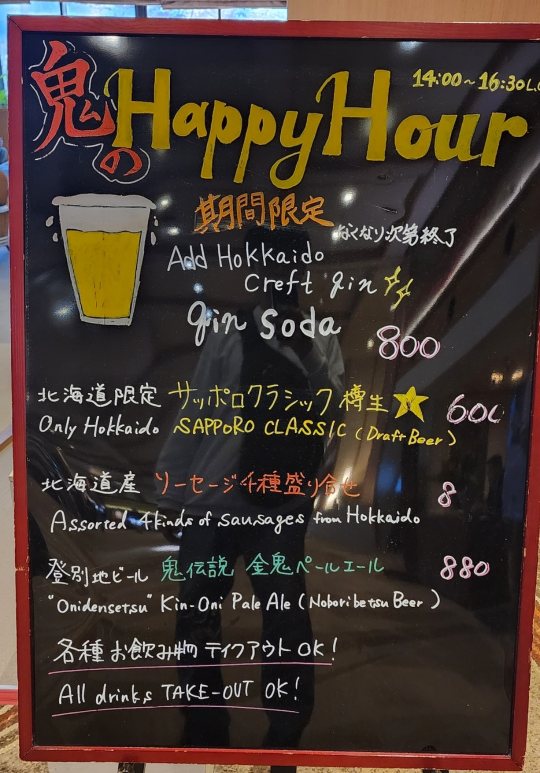 鬼の Happy Hour 14:00～16:30 L.
期間限定
なくなり次第終了
Add Hokkaido
Creft gin
gin soda 800
北海道限定 サッポロクラシック 樽生 ★
Only Hokkaido SAPPORO CLASSIC (Draft Beer)
北海道産 ソーセージ4種盛り合せ 8
Assorted 4kinds of sausages from Hokkaido
登別地ビール 鬼伝説 金鬼ペールエール 880
"Onidensetsu" Kin-Oni Pale Ale (Noboribetsu Beer)
各種お飲み物 テイクアウト OK!
All drinks TAKE-OUT OK!